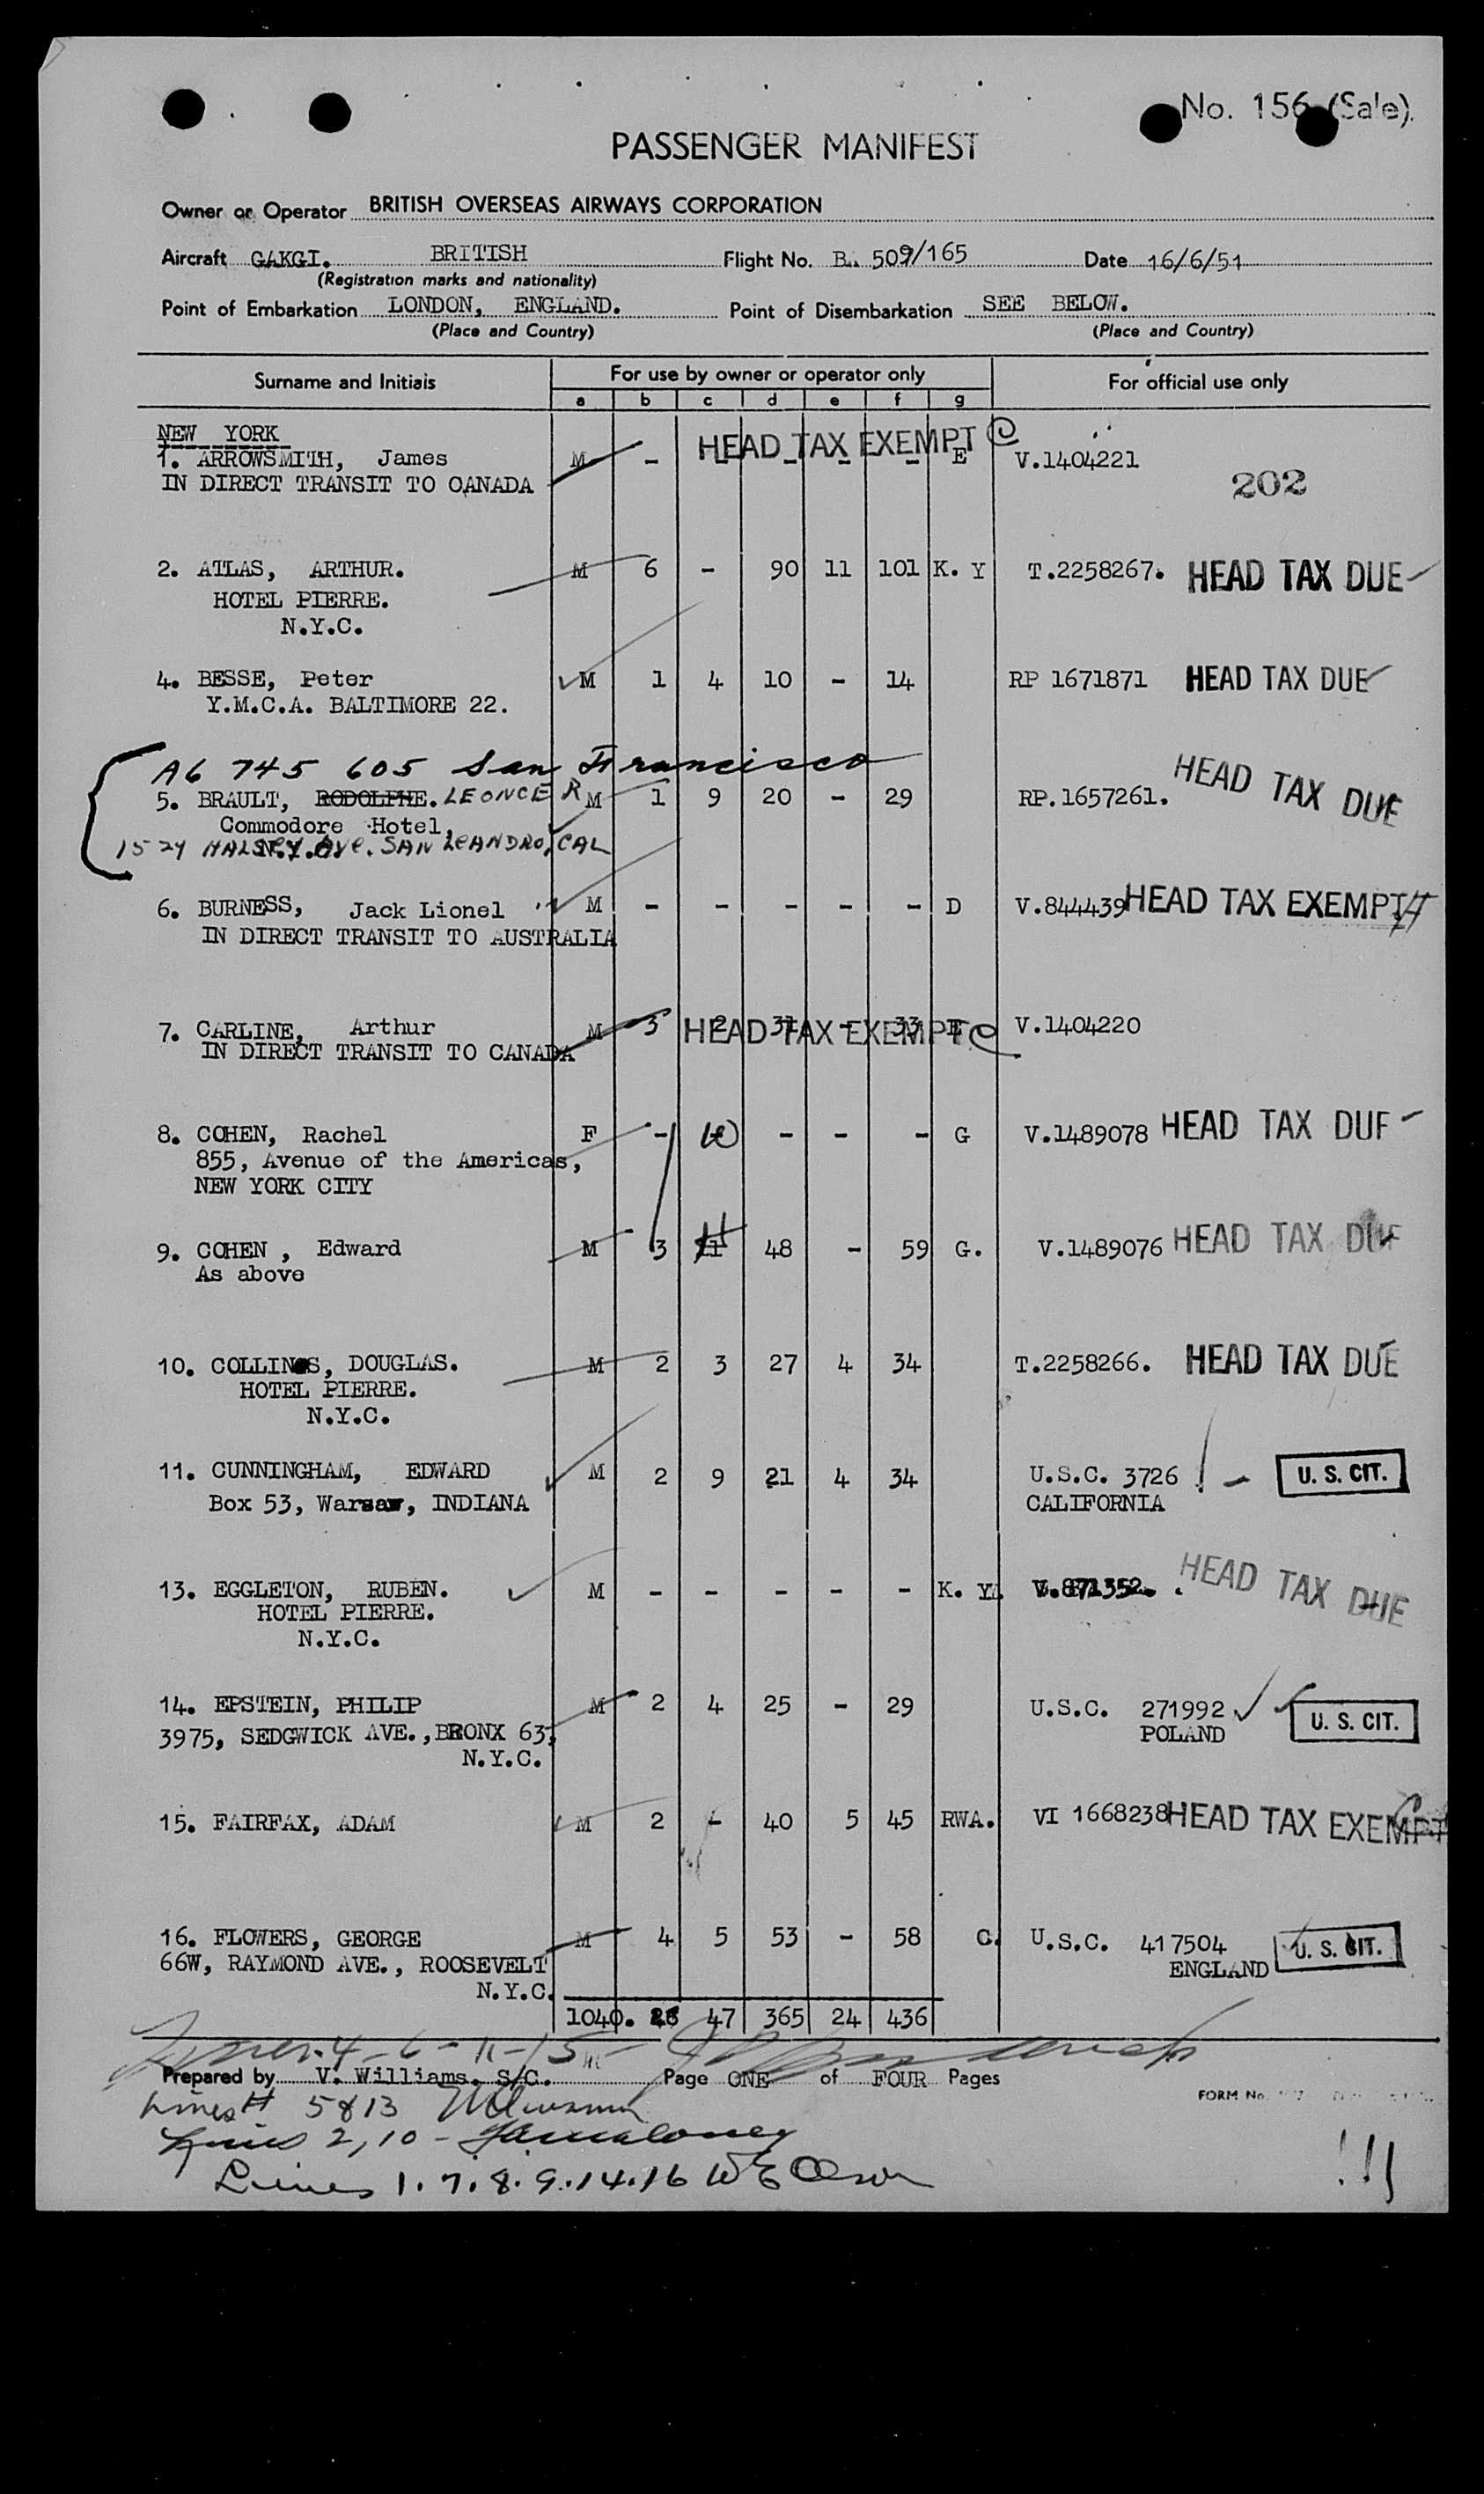 No. 156 (Sale).
PASSENGER MANIFEST
Owner or Operator BRITISH OVERSEAS AIRWAYS CORPORATION
Aircraft GAKGI. BRITISH Flight No. B. 509/165 Date 16/6/51
(Registration marks and nationality)
Point of Embarkation LONDON, ENGLAND. Point of Disembarkation SEE BELOW.
(Place and Country) (Place and Country)
Surname and Initials For use by owner or operator only For official use only
a b c d e f g
NEW YORK HEAD TAX EXEMPT C
1. ARROWSMITH, James M - - - - - E V.1404221
IN DIRECT TRANSIT TO CANADA 202
2. ATLAS, ARTHUR. M 6 - 90 11 101 K. Y T.2258267. HEAD TAX DUE
HOTEL PIERRE.
N.Y.C.
4. BESSE, Peter M 1 4 10 - 14 RP 1671871 HEAD TAX DUE
Y.M.C.A. BALTIMORE 22.
A6 745 605 San Francisco
5. BRAULT, RODOLPHE. LEONCE R M 1 9 20 - 29 RP.1657261. HEAD TAX DUE
Commodore Hotel,
1524 HALSEY AVE. SAN LEANDRO, CAL
6. BURNESS, Jack Lionel M - - - - - D V.844439 HEAD TAX EXEMPT
IN DIRECT TRANSIT TO AUSTRALIA
7. CARLINE, Arthur M 3 2 31 - 33 E V.1404220 HEAD TAX EXEMPT C
IN DIRECT TRANSIT TO CANADA
8. COHEN, Rachel F - - - - G V.1489078 HEAD TAX DUE
855, Avenue of the Americas,
NEW YORK CITY
9. COHEN , Edward M 3 11 48 - 59 G. V.1489076 HEAD TAX DUE
As above
10. COLLINS, DOUGLAS. M 2 3 27 4 34 T.2258266. HEAD TAX DUE
HOTEL PIERRE.
N.Y.C.
11. CUNNINGHAM, EDWARD M 2 9 21 4 34 U.S.C. 3726 U. S. CIT.
Box 53, Warsaw, INDIANA CALIFORNIA
13. EGGLETON, RUBEN. M - - - - - K. Y. V.871352. HEAD TAX DUE
HOTEL PIERRE.
N.Y.C.
14. EPSTEIN, PHILIP M 2 4 25 - 29 U.S.C. 271992 U. S. CIT.
3975, SEDGWICK AVE., BRONX 63, POLAND
N.Y.C.
15. FAIRFAX, ADAM M 2 - 40 5 45 RWA. VI 1668238 HEAD TAX EXEMPT
16. FLOWERS, GEORGE M 4 5 53 - 58 C. U.S.C. 417504 U. S. CIT.
66W, RAYMOND AVE., ROOSEVELT ENGLAND
N.Y.C.
1040. 47 365 24 436
Lines. 4-6-11-15-
Prepared by V. Williams. S/C. Page ONE of FOUR Pages
FORM No.
Lines # 5 & 13
Lines 2, 10 -
Lines 1. 7. 8. 9. 14. 16 WE Olson